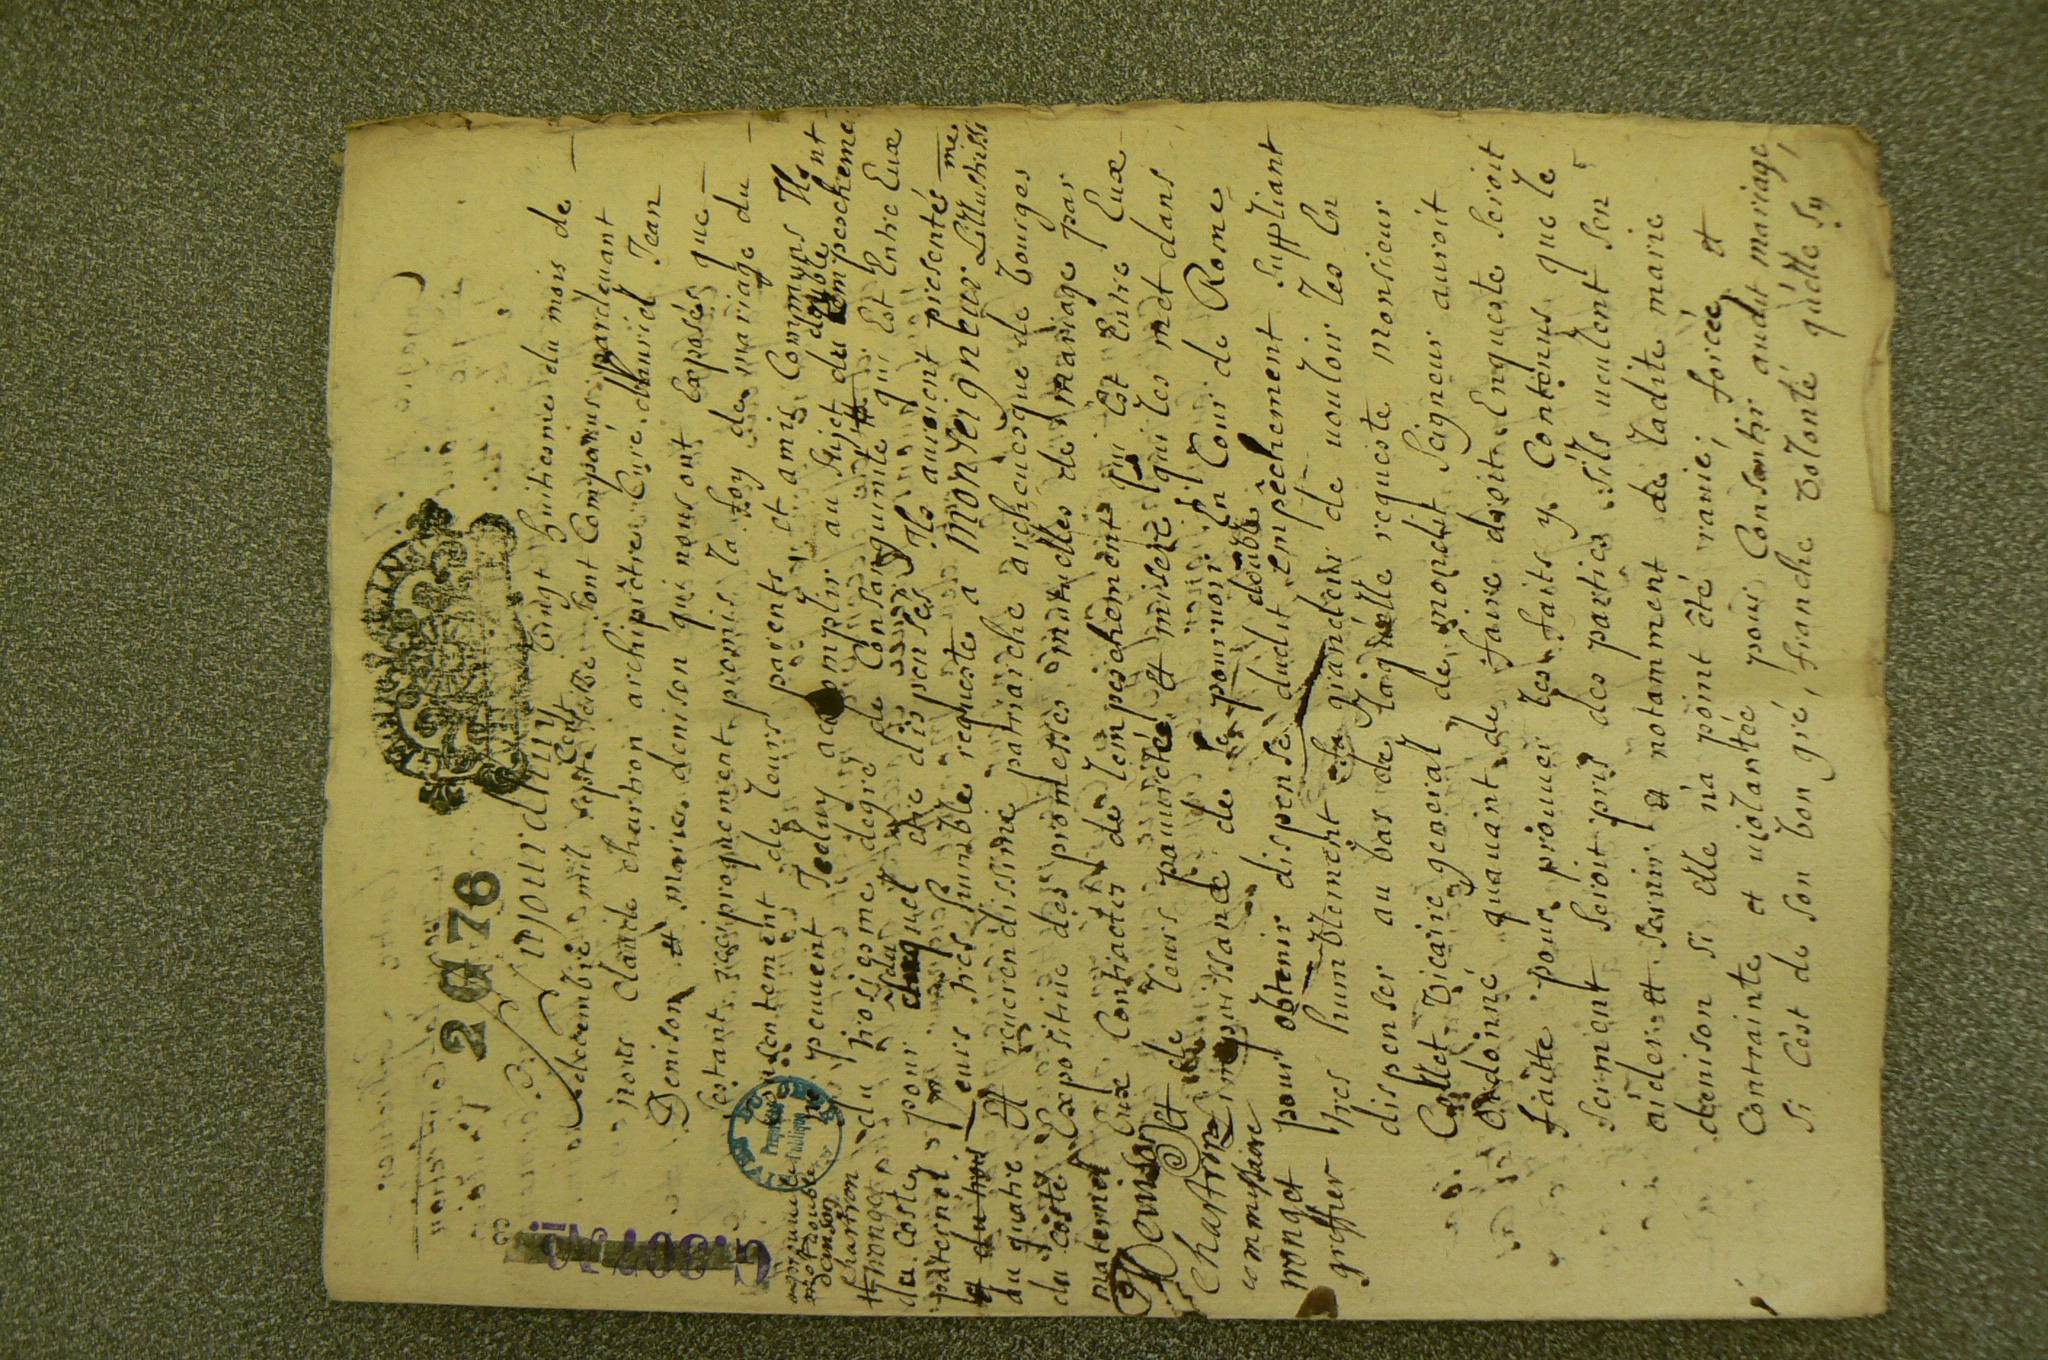 2 G 76
Aujourdhuy Vingt huitiesme du mois de
decembre mil sept Cent
nous claude chartron archiprêtre Curé Jean
Denison et marie denison qui nous ont Exposés que
sestant reciproquement promis la foy de mariage du
Consentement de leurs parents et amis Communs Ils
ne peuuent Iceluy accomplir au sujet du double Empeschement
du troisiesme degré de Consanguinité # qui Est Entre Eux
pour estre dispensés Ils auroient presenté
leurs tres humble requeste a Monseigneur Lillustrissime
Et reuerendissime patriarche archeuesque de bourges
Expositiue des promesses mutuelles de mariage par
Eux Contractés de lempeschement qui Est Entre Eux
Et de leurs pauureté et misere qui les met dans
Limpuissance de se pouruoir En Cour de Rome
pour obtenir dispense dudit double empêchement suppliant
tres humblement sa grandeur de uouloir les En
dispenser au bas de laquelle requeste monsieur
Collet Vicaire general de mondit seigneur auroit
Ordonné quauant de faire droit Enqueste seroit
faitte pour prouuer les faits y Contenus que le
serment seroit pris des parties sils ueulent sen
aider et seruir et notamment de ladite marie
denison si elle na point été rauie, forcée et
Contrainte et uiolantée pour Consentir audit mariage,
si Cest de son bon gré, franche Volonté quelle sy
approuué
mot double
denison
chartron
# monget
du Costé
paternel
et du trois
au quatre
du Costé
maternel
Denison
Chartron
commissaire
monget
greffier